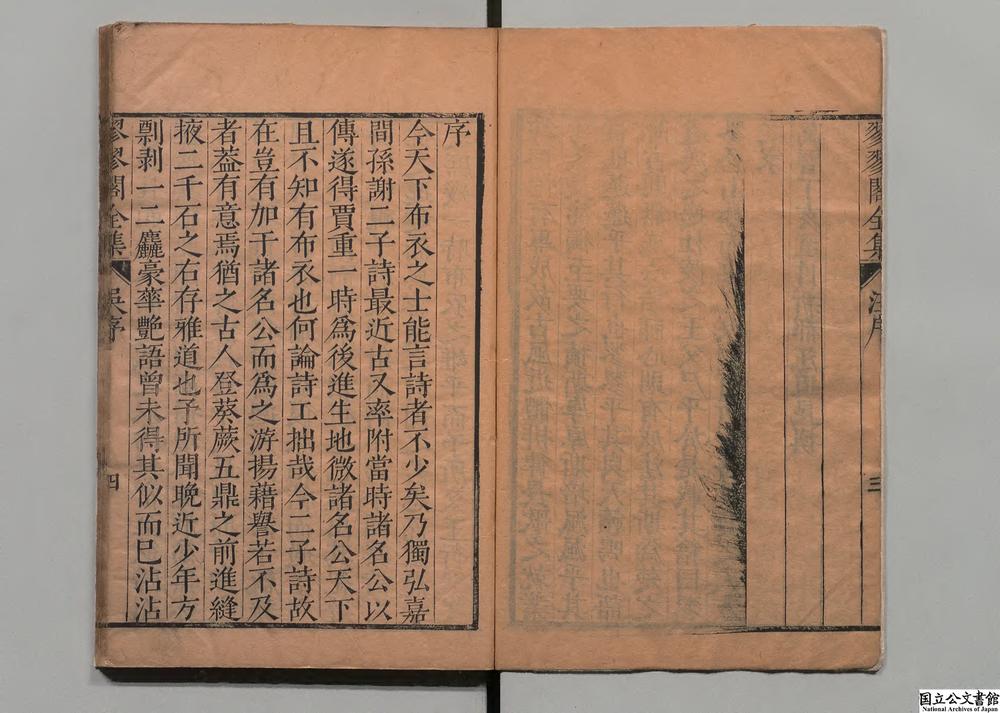 翏翏閣全集 汪序 三
序
今天下布衣之士能言詩者不少矣乃獨弘嘉
間孫謝二子詩最近古又率附當時諸名公以
傳遂得賈重一時爲後進生地微諸名公天下
且不知有布衣也何論詩工拙哉今二子詩故
在豈有加于諸名公而爲之游揚藉譽若不及
者葢有意焉猶之古人登葵蕨五鼎之前進縫
掖二千石之右存雅道也予所聞晚近少年方
剽剥一二麤豪華艷語曾未得其似而巳沾沾
翏翏閣全集 吳序 四
国立公文書館
National Archives of Japan